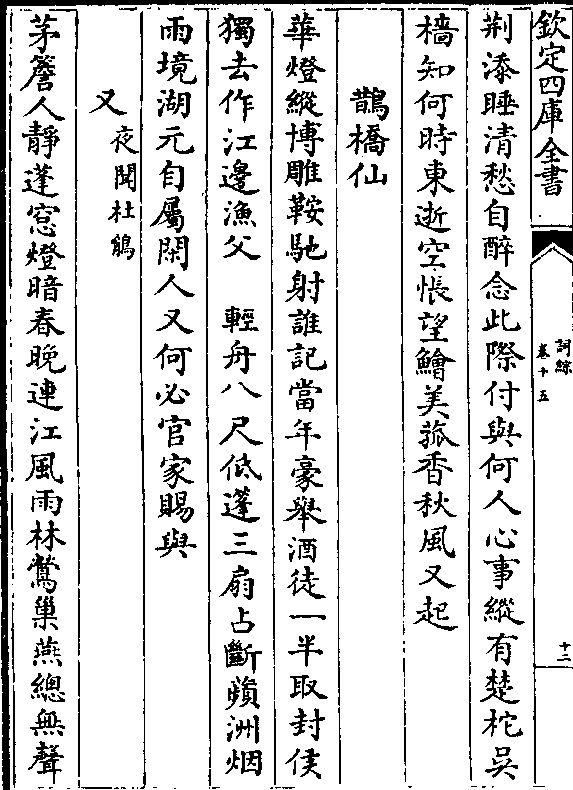 欽定四庫全書
詞綜
卷十五
十二
荆添睡清愁自醉念此際付與何人心事縱有楚柁吳
檣知何時東逝空悵望鱠美菰香秋風又起
鵲橋仙
華燈縱博雕鞍馳射誰記當年豪舉酒徒一半取封侯
獨去作江邊漁父 輕舟八尺低蓬三扇占斷蘋洲烟
雨境湖元自屬閑人又何必官家賜與
又夜聞杜鵑
茅簷人靜蓬窓燈暗春晚連江風雨林鶯巢燕總無聲